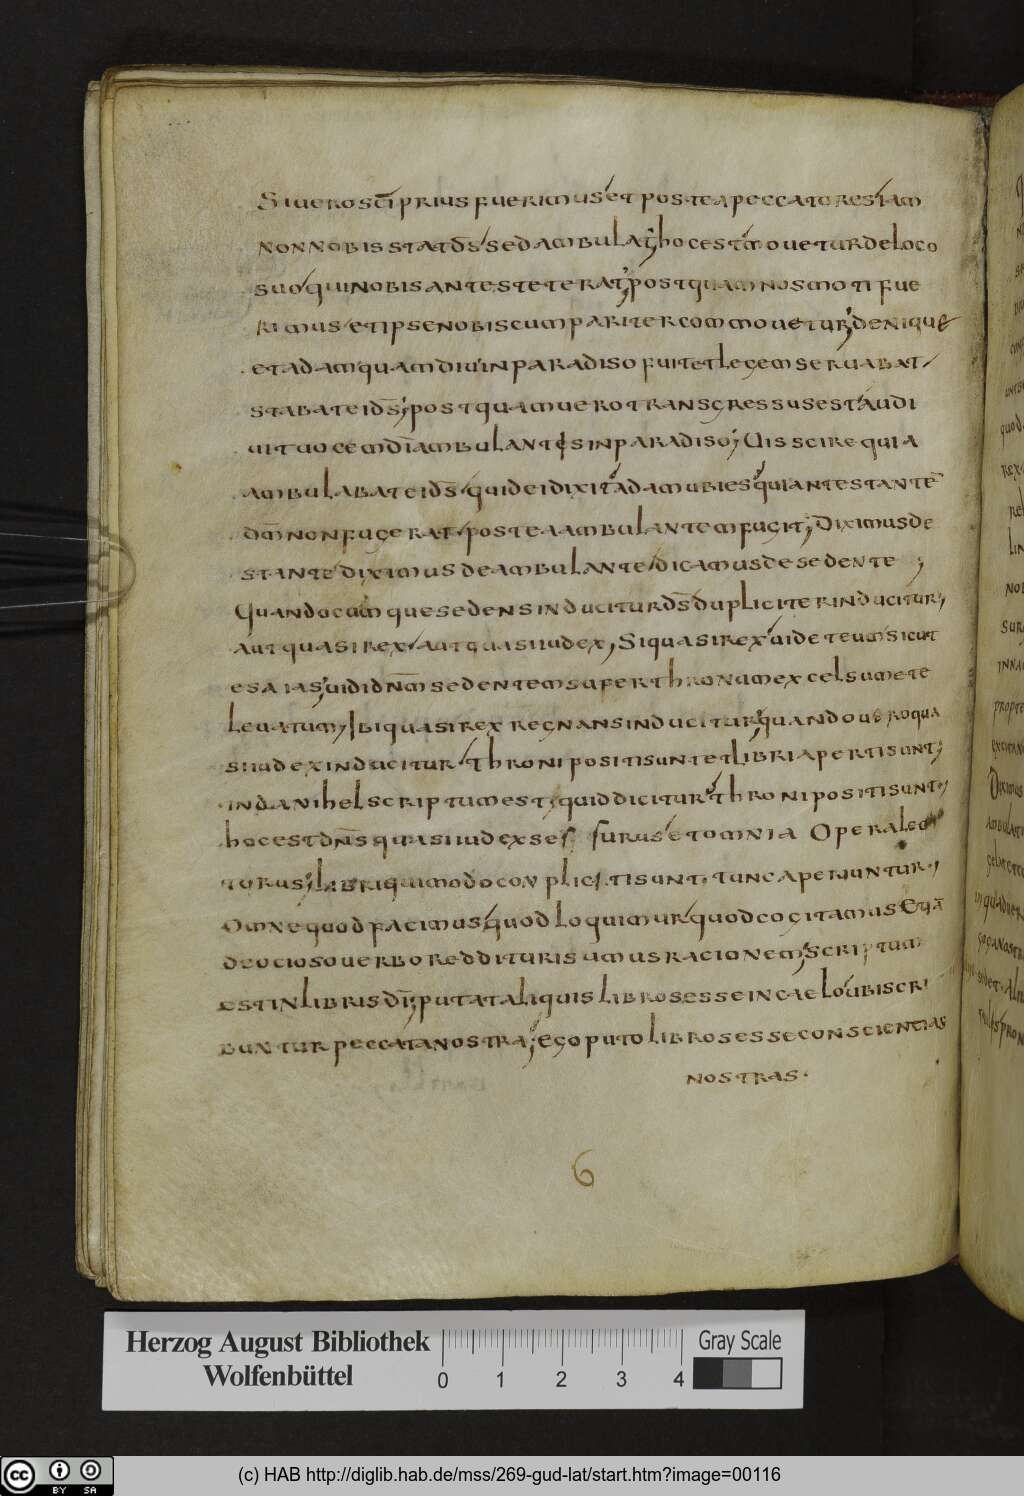 Siuero sc̄i prius fuerimus et postea peccatores iam
non nobis stat d̄s sed ambulat; hoc est mouetur de loco
suo qui nobis ante steterat; postquam nos moti fue
rimus et ipse nobiscum pariter commouetur; denique
et adam quamdiu in paradiso fuit et legem seruabat
stabat ei d̄s; postquam uero transgressus est audi
uit uocem dī ambulantis in paradiso; Uis scire quia
ambulabat ei d̄s quid ei dixit adam ubi es quia ante stantē
dm̄ non fugerat postea ambulantem fugit; Diximus de
stante diximus de ambulante dicamus de sedente;
Quandocumque sedens inducitur d̄s dupliciter inducitur;
aut quasi rex aut quasi iudex; Si quasi rex uidete eum sicut
esaias; uidi dnm̄ sedentem super thronum excelsum et e
leuatum; Ibi quasi rex regnans inducitur; quando uero qua
si iudex inducitur throni positi sunt et libri aperti sunt;
in danihel scriptum est; quid dicitur throni positi sunt;
hoc est dn̄s quasi iudex ses surus et omnia opera lec
turus; libri qui modo conplicati sunt. tunc aperiuntur;
Omne quod facimus quod loquimur quod cogitamus Etiā
de ocioso uerbo reddituri sumus racionem; scriptum
est in libris dī; putat aliquis libros esse in caelo ubi scri
buntur peccata nostra; ego puto libros esse conscientias
nostras.
6
Herzog August Bibliothek
Wolfenbüttel
0 1 2 3 4
Gray Scale
cc BY SA
(c) HAB http://diglib.hab.de/mss/269-gud-lat/start.htm?image=00116